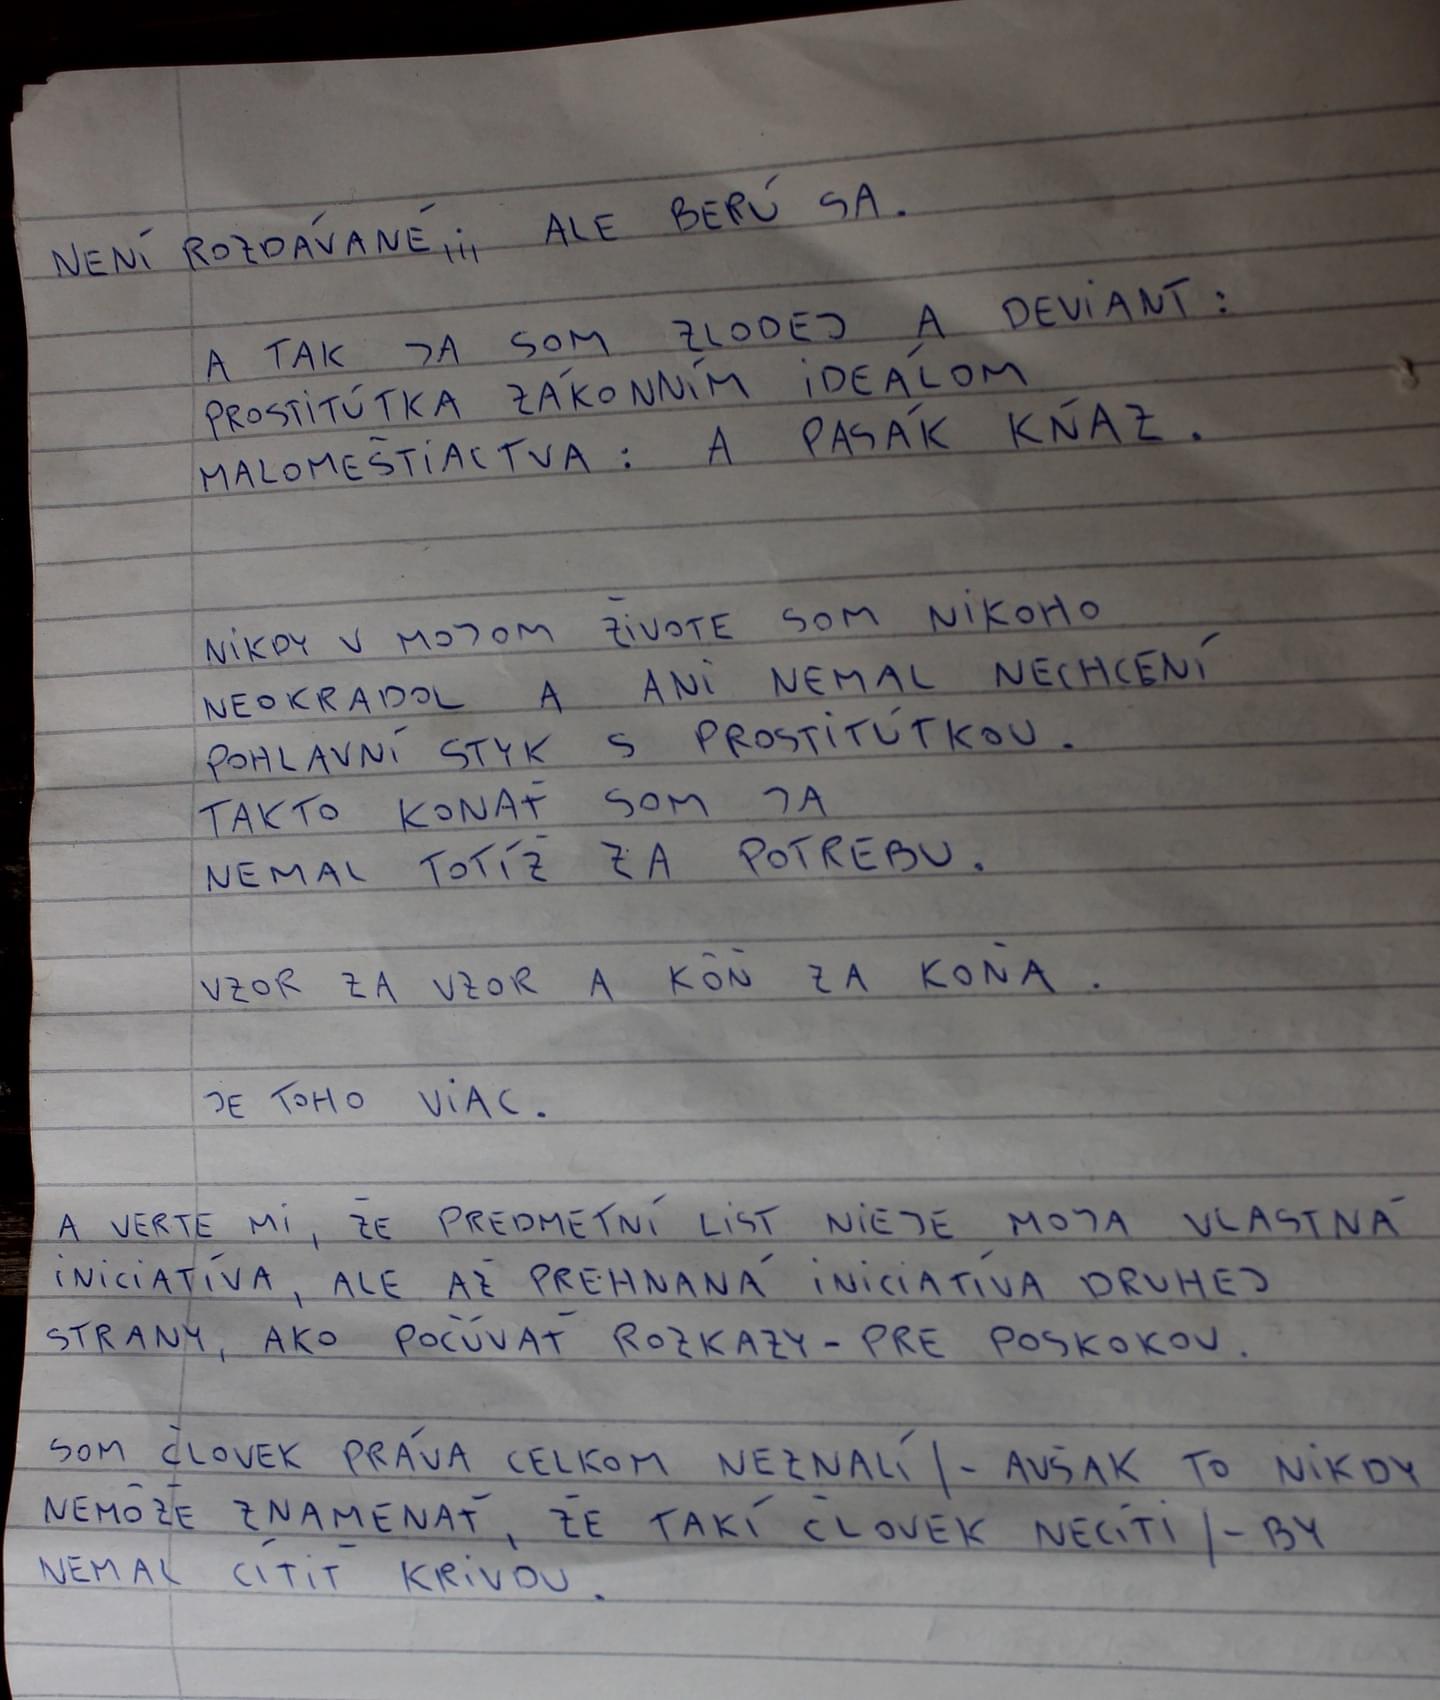 NENÍ ROZDÁVANÉ,¡¡, ALE BERÚ SA.
A TAK JA SOM ZLODEJ A DEVIANT:
PROSTITÚTKA ZÁKONNÍM IDEÁLOM
MALOMEŠTIACTVA: A PASÁK KŇAZ.
NIKDY V MOJOM ŽIVOTE SOM NIKOHO
NEOKRADOL A ANI NEMAL NECHCENÍ
POHLAVNÍ STYK S PROSTITÚTKOU.
TAKTO KONAŤ SOM JA
NEMAL TOTÍŽ ZA POTREBU.
VZOR ZA VZOR A KÔŇ ZA KOŇA.
JE TOHO VIAC.
A VERTE MI, ŽE PREDMETNÍ LIST NIEJE MOJA VLASTNÁ
INICIATÍVA, ALE AŽ PREHNANÁ INICIATÍVA DRUHEJ
STRANY, AKO POČÚVAŤ ROZKAZY - PRE POSKOKOV.
SOM ČLOVEK PRÁVA CELKOM NEZNALÍ /- AVŠAK TO NIKDY
NEMÔŽE ZNAMENAŤ, ŽE TAKÍ ČLOVEK NECÍTI /- BY
NEMAL CÍTIŤ KRIVDU.